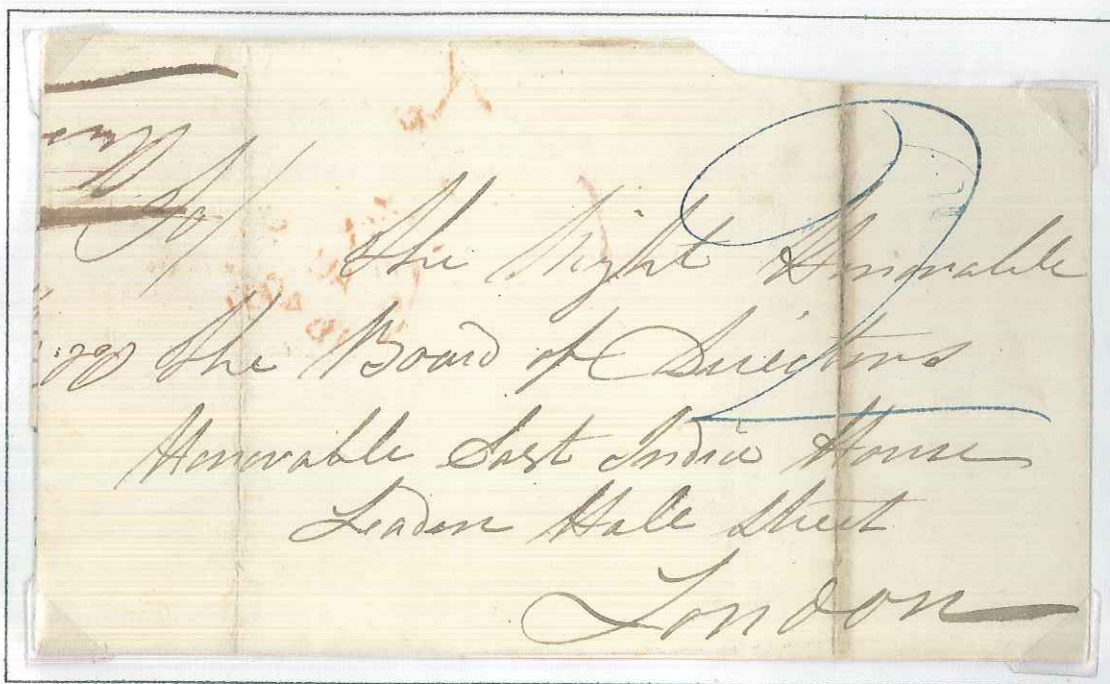 To/ The Right Honorable
The Board of Directors
Honorable East India House
Leaden Hall Street
London
2